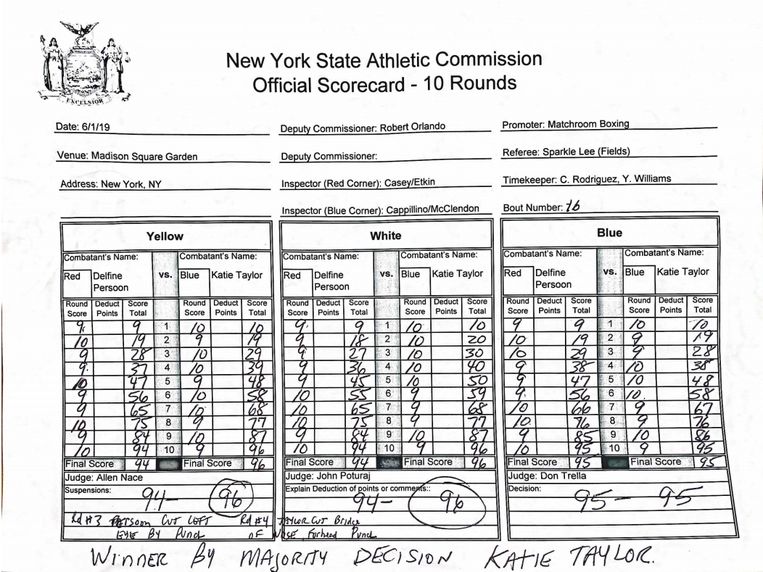 EXCELSIOR
New York State Athletic Commission
Official Scorecard - 10 Rounds
Date: 6/1/19 Deputy Commissioner: Robert Orlando Promoter: Matchroom Boxing
Venue: Madison Square Garden Deputy Commissioner: Referee: Sparkle Lee (Fields)
Address: New York, NY Inspector (Red Corner): Casey/Etkin Timekeeper: C. Rodriguez, Y. Williams
Inspector (Blue Corner): Cappillino/McClendon Bout Number: 16
Yellow White Blue
Combatant's Name: Combatant's Name: Combatant's Name: Combatant's Name: Combatant's Name: Combatant's Name:
Red Delfine vs. Blue Katie Taylor Red Delfine vs. Blue Katie Taylor Red Delfine vs. Blue Katie Taylor
Persoon Persoon Persoon
Round Deduct Score Round Deduct Score Round Deduct Score Round Deduct Score Round Deduct Score Round Deduct Score
Score Points Total Score Points Total Score Points Total Score Points Total Score Points Total Score Points Total
9 9 1 10 10 9 9 1 10 10 9 9 1 10 10
10 19 2 9 19 9 18 2 10 20 10 19 2 9 19
9 28 3 10 29 9 27 3 10 30 10 29 3 9 28
9 37 4 10 39 9 36 4 10 40 9 38 4 10 38
10 47 5 9 48 9 45 5 10 50 9 47 5 10 48
9 56 6 10 58 10 55 6 9 59 9 56 6 10 58
9 65 7 10 68 10 65 7 9 68 10 66 7 9 67
10 75 8 9 77 10 75 8 9 77 10 76 8 9 76
9 84 9 10 87 9 84 9 10 87 9 85 9 10 86
10 94 10 9 96 10 94 10 9 96 10 95 10 9 95
Final Score 94 Final Score 96 Final Score 94 Final Score 96 Final Score 95 Final Score 95
Judge: Allen Nace Judge: John Poturaj Judge: Don Trella
Suspensions: Explain Deduction of points or comments:: Decision:
94 - 96 94 - 96 95 - 95
Rd #3 PERSOON CUT LEFT Rd #4 TAYLOR CUT Bridge
EYE BY Punch OF NOSE, Forhead Punch
WINNER BY MAJORITY DECISION KATIE TAYLOR.